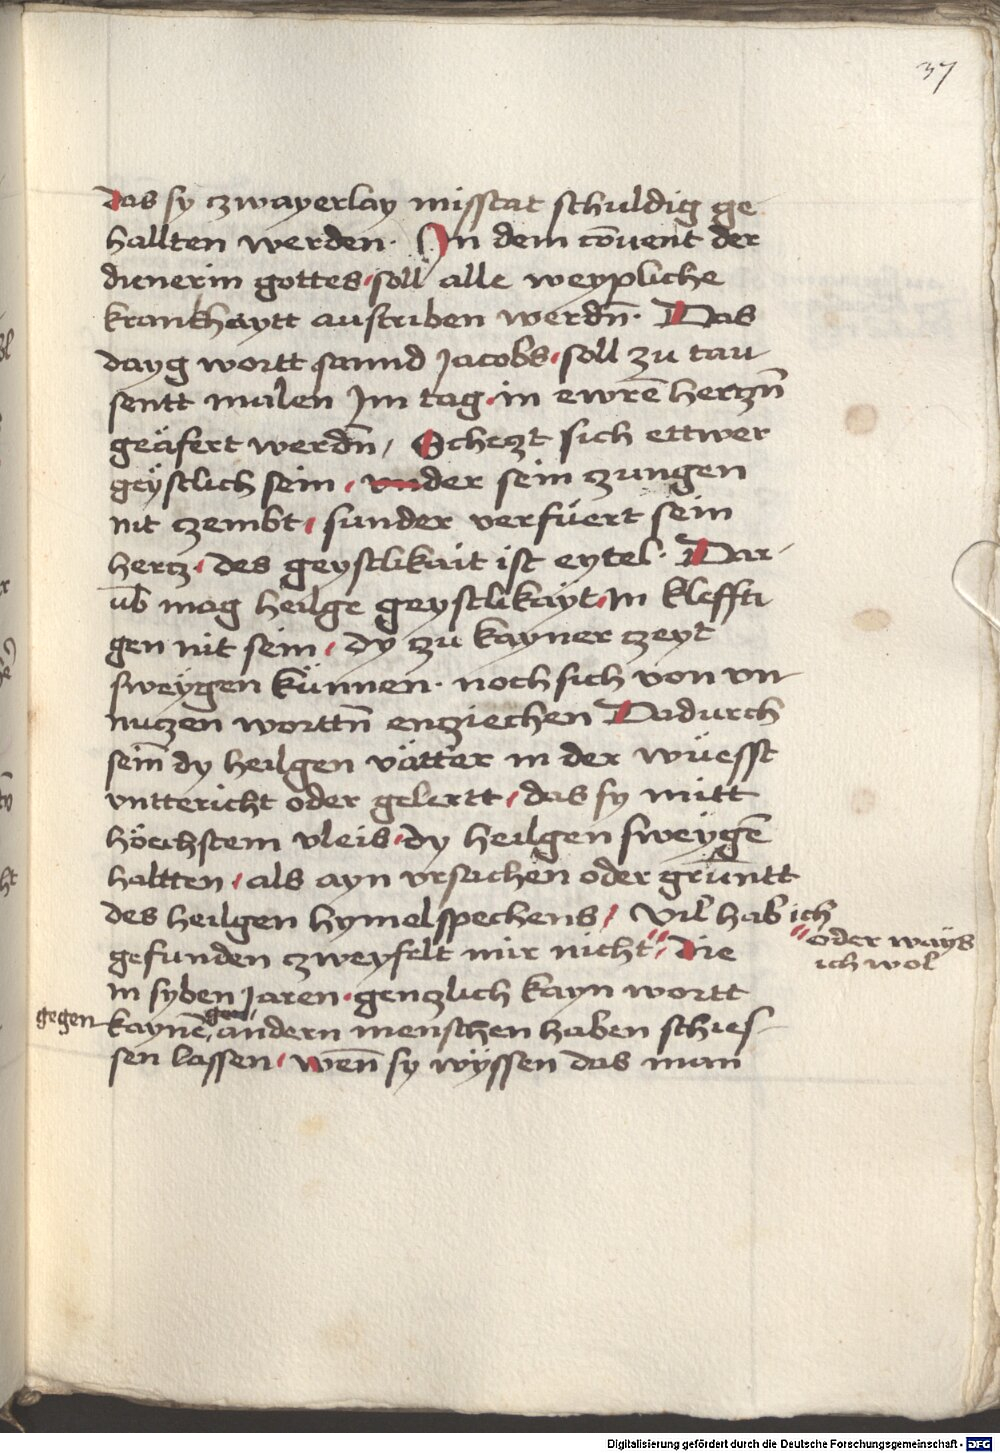 37
das sy czwayerlay misstat schuldig ge
hallten werden · In dem co͞uent der
dienerin gottes · soll alle weypliche
krankhaytt austriben werdn̄ · Das
dayg wortt sannd Jacobs · soll zu tau
sentt malen Jm tag · in ewrē hertzn̄
geäfert werdn̄ / Scheczt sich ettwer
geÿstlich sein / vnder sein zungen
nit czembt / sunder verfüert sein
hercz · des geystlikait ist eytel · Dar-
ub̄ mag heilge geystlikayt · In kleffti
gen nit sein / dy zu kayner czeyt
sweÿgen künnen · noch sich von vn
nuczen worttn̄ encziechen Dadurch
sein̄ dy heilgen vätter in der wüesst
vnttericht oder gelertt / das sy mitt
höchstem vleis · dy heilgen sweÿgē
haltten / als ayn vrsachen oder grünntt
des heilgen hymelspechens / Vil hab ich
oder wäÿs
ich wol
gefunden czweyfelt mir nicht / die
in syben Jaren · genczlich kayn wortt
gegen kaynē andern menschen haben schies-
sen lassen / wēn sy wÿssen das man
Digitalisierung gefördert durch die Deutsche Forschungsgemeinschaft - DFG